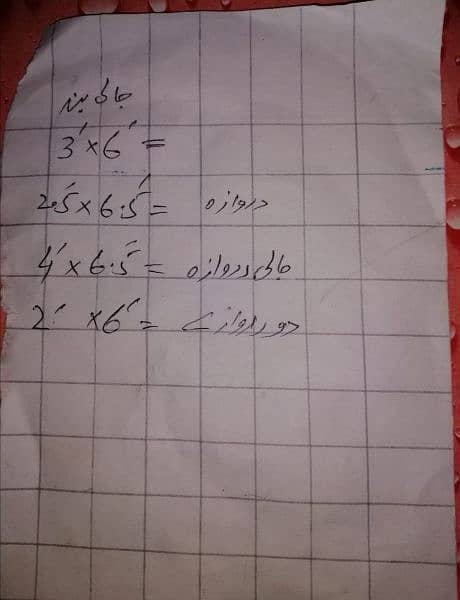 جالی بند
3' × 6' =
2.5' × 6.5' = دروازہ
4' × 6.5' = جالی دروازہ
2' × 6' = دو دروازے